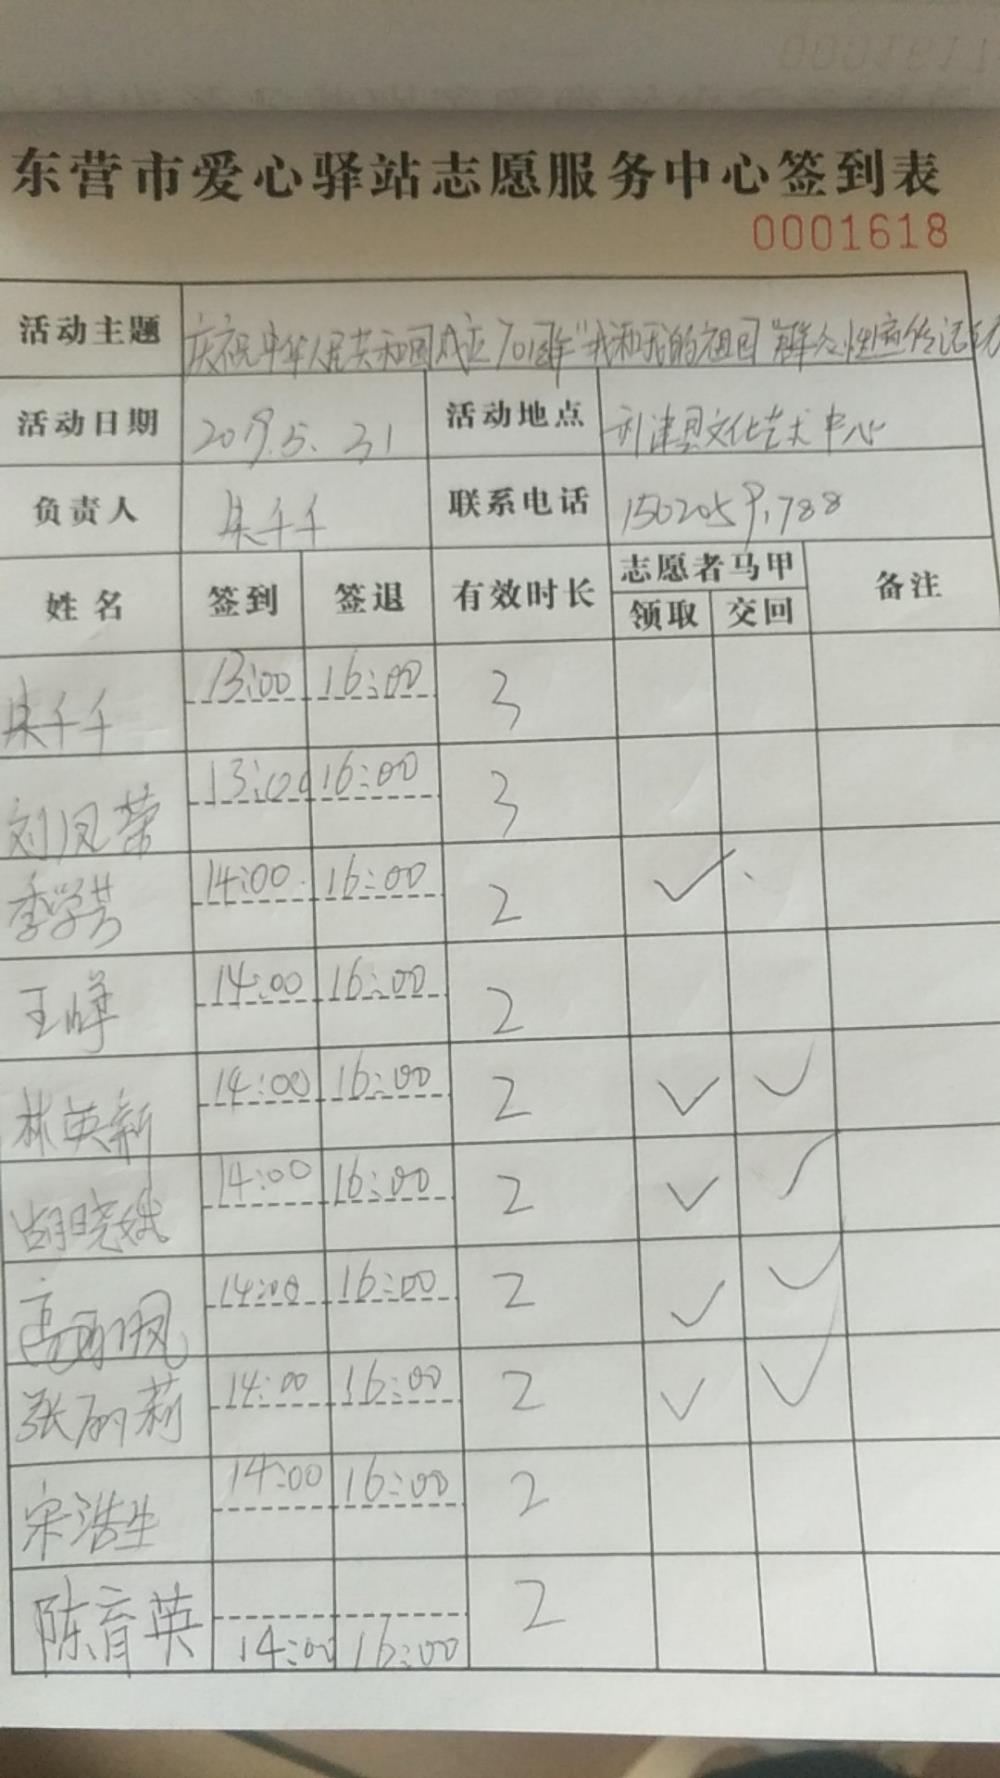 东营市爱心驿站志愿服务中心签到表
0001618
活动主题 庆祝中华人民共和国成立70周年"我和我的祖国"群众性宣传活动
活动日期 2019.5.31 活动地点 利津县文化艺术中心
负责人 朱千千 联系电话
姓名 签到 签退 有效时长 志愿者马甲 备注
领取 交回
朱千千 13:00 16:00 3
刘凤荣 13:00 16:00 3
季学芳 14:00 16:00 2 ✓
王峰 14:00 16:00 2
林英新 14:00 16:00 2 ✓ ✓
胡晓娥 14:00 16:00 2 ✓ ✓
高 凤 14:00 16:00 2 ✓ ✓
张丽莉 14:00 16:00 2 ✓ ✓
宋浩生 14:00 16:00 2
陈育英 14:00 16:00 2